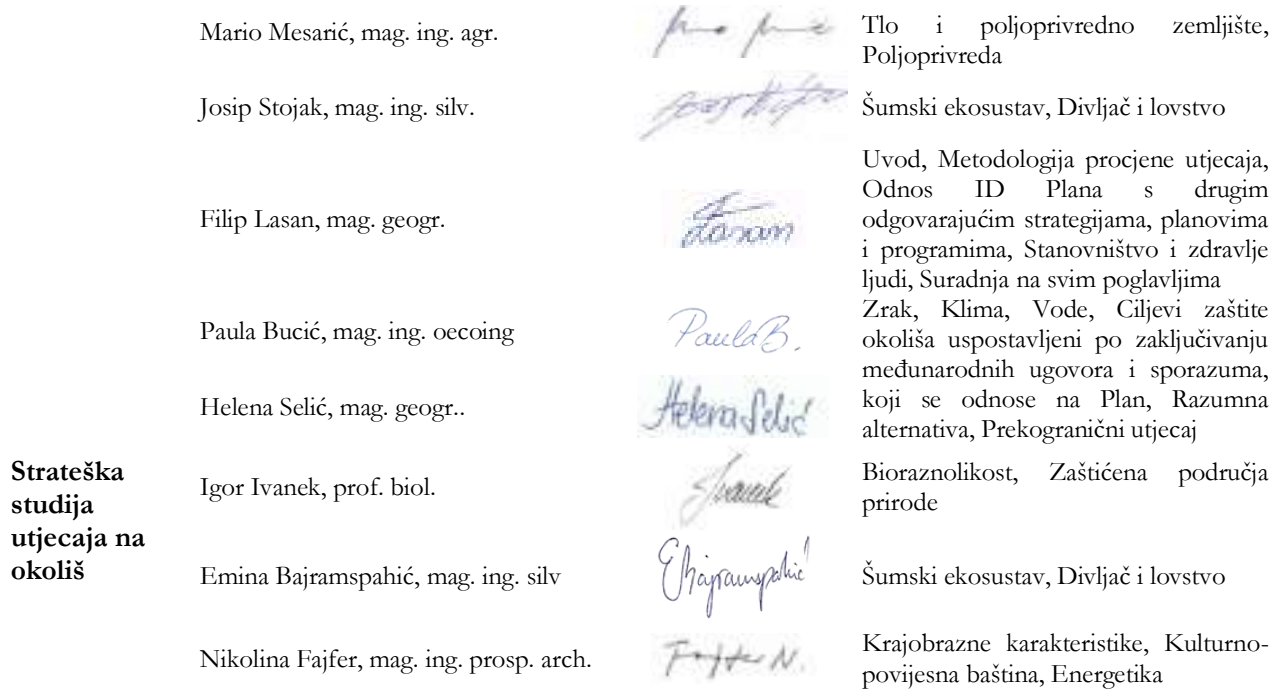 Mario Mesarić, mag. ing. agr.
Tlo i poljoprivredno zemljište,
Poljoprivreda
Josip Stojak, mag. ing. silv.
Šumski ekosustav, Divljač i lovstvo
Filip Lasan, mag. geogr.
Lasan
Uvod, Metodologija procjene utjecaja,
Odnos ID Plana s drugim
odgovarajućim strategijama, planovima
i programima, Stanovništvo i zdravlje
ljudi, Suradnja na svim poglavljima
Paula Bucić, mag. ing. oecoing
PaulaB.
Zrak, Klima, Vode, Ciljevi zaštite
okoliša uspostavljeni po zaključivanju
međunarodnih ugovora i sporazuma,
koji se odnose na Plan, Razumna
alternativa, Prekogranični utjecaj
Helena Selić, mag. geogr..
Helena Selić
Strateška
studija
utjecaja na
okoliš
Igor Ivanek, prof. biol.
Ivanek
Bioraznolikost, Zaštićena područja
prirode
Emina Bajramspahić, mag. ing. silv
EBajramspahić
Šumski ekosustav, Divljač i lovstvo
Nikolina Fajfer, mag. ing. prosp. arch.
Fajfer N.
Krajobrazne karakteristike, Kulturno-
povijesna baština, Energetika